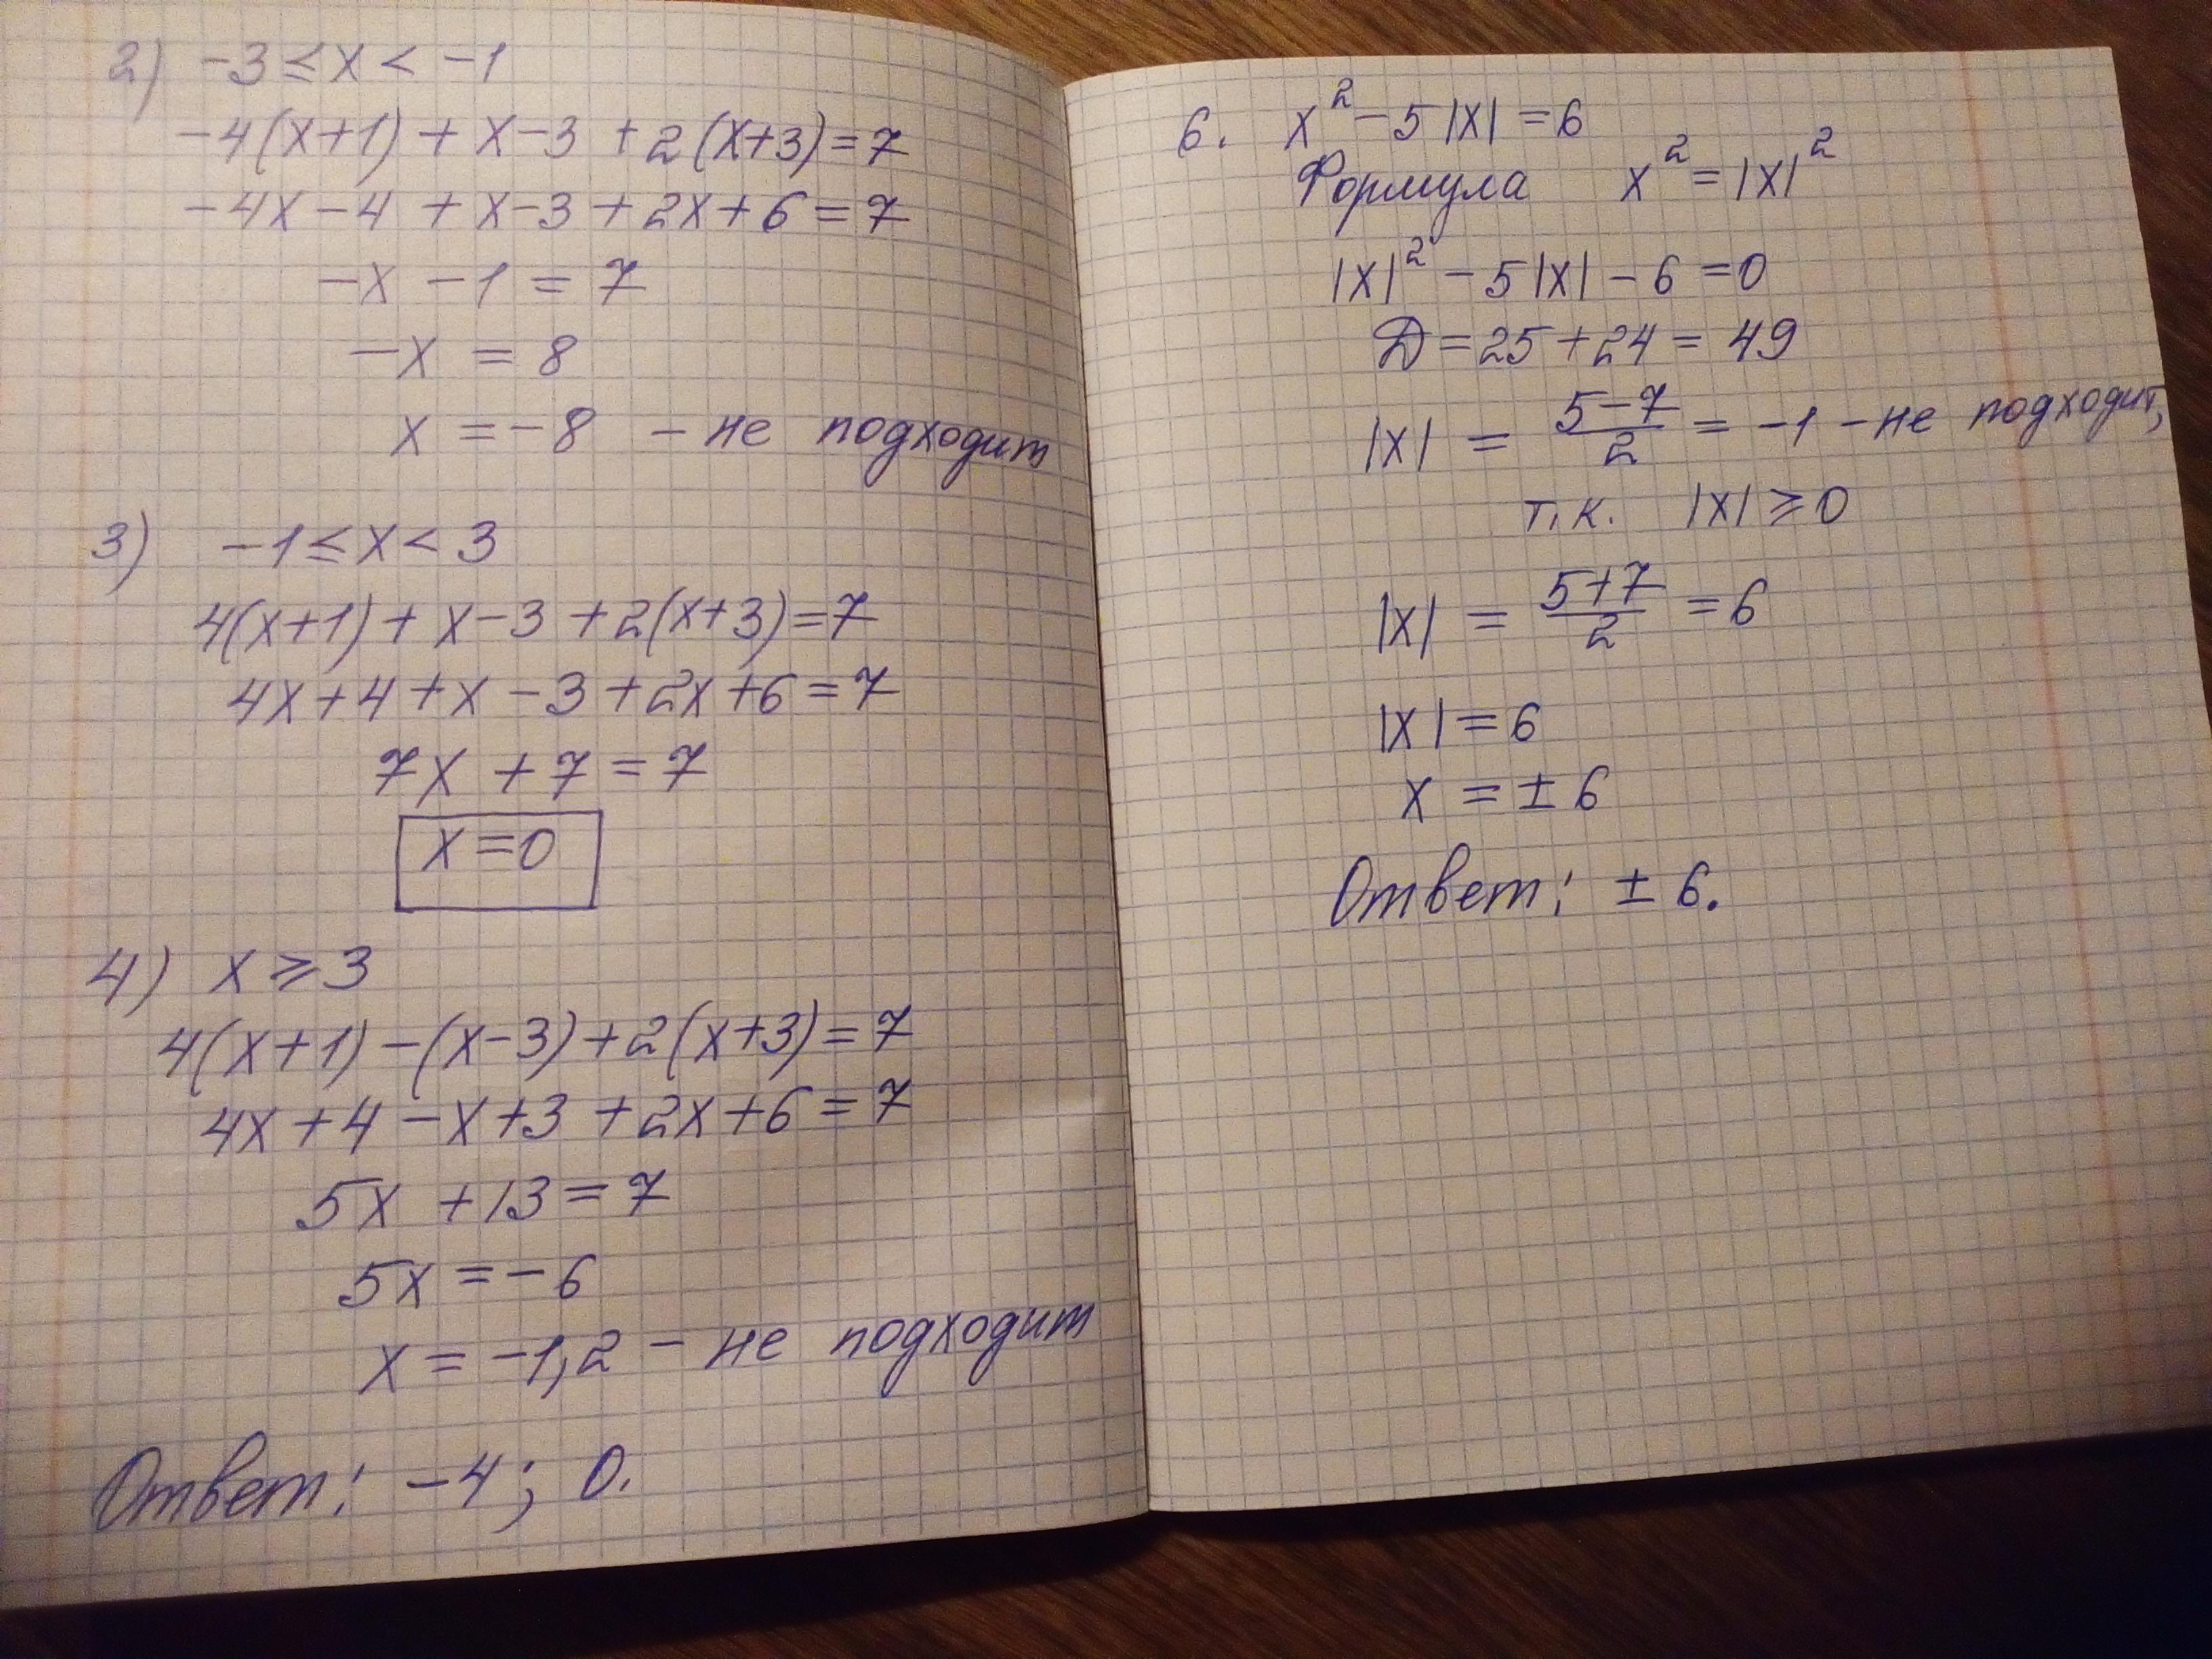 2) -3 ≤ x < -1
-4(x+1) + x-3 + 2(x+3)=7
-4x-4 + x-3 + 2x+6=7
-x -1 = 7
-x = 8
x = -8 - не подходит
3) -1 ≤ x < 3
4(x+1) + x-3 + 2(x+3)=7
4x+4+x-3+2x+6=7
7x +7=7
x=0
4) x ≥ 3
4(x+1)-(x-3)+2(x+3)=7
4x+4-x+3+2x+6=7
5x +13=7
5x = -6
x = -1,2 - не подходит
Ответ: -4; 0.
6. x² - 5|x| = 6
Формула x² = |x|²
|x|² - 5|x| - 6 = 0
Д = 25 + 24 = 49
|x| = (5-7)/2 = -1 - не подходит,
т.к. |x| ≥ 0
|x| = (5+7)/2 = 6
|x| = 6
x = ± 6
Ответ: ± 6.